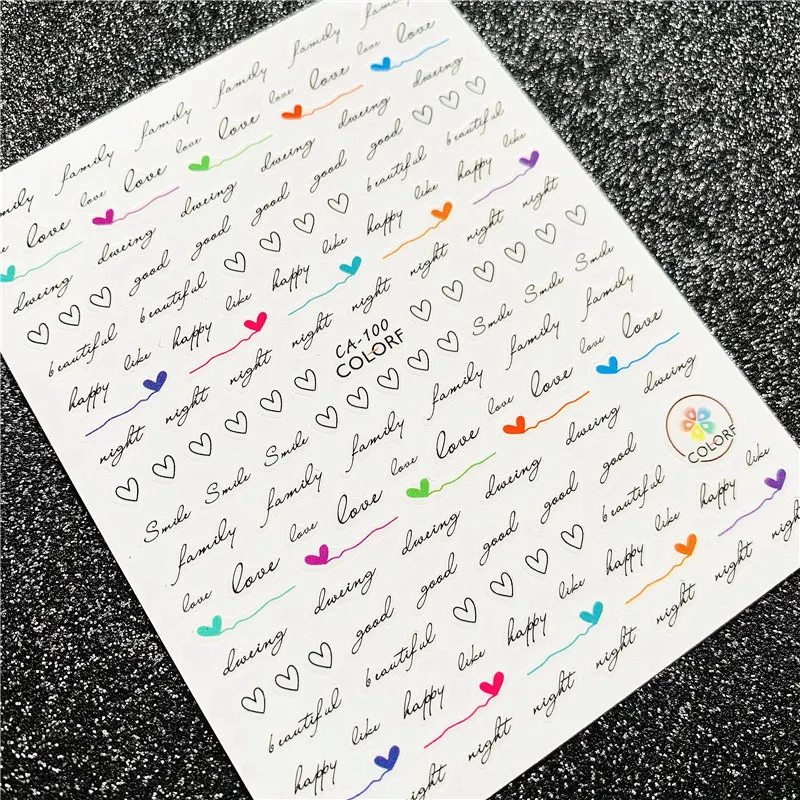 mily family family family family family
love love love love love love love love love
dweing dweing dweing dweing dweing dweing
good good good good good
beautiful beautiful beautiful beautiful
happy like happy like happy like happy like happy like
night night night night night night night night
CA-100
COLORF
Smile Smile Smile Smile Smile Smile
family family family family family family
love love love love love love love love love love
dweing dweing dweing dweing dweing dweing
good good good good good
COLORF
beautiful beautiful beautiful
happy like happy like happy like happy like happy like
ight night night night night night nigh